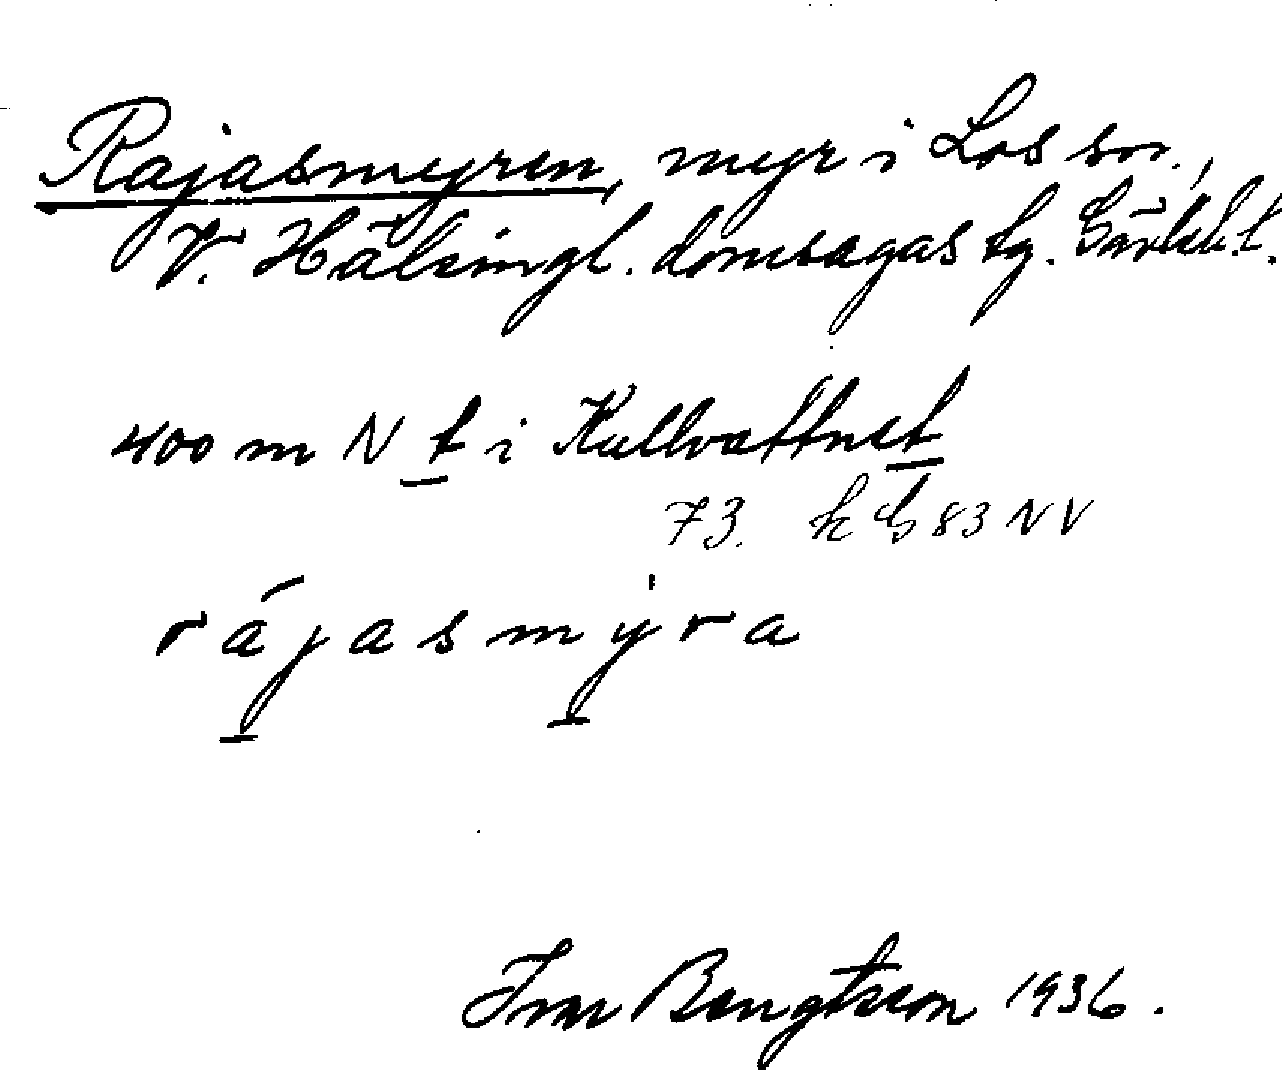 Rajasmyren, myr i Los sn.,
V. Hälsingl. domsagas tg. Gävlebl.
400 m N t i Kullvattnet
73. k G 83 NV
rájasmýra
Ivar Bengtsson 1936.